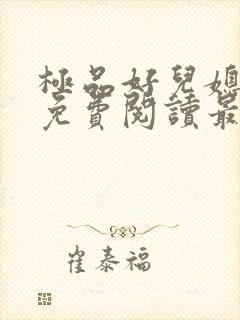 極品好兒媳
免費閱讀最
崔泰福